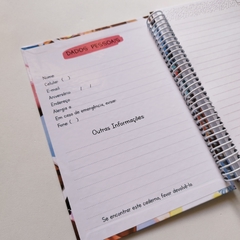 DADOS PESSOAIS
Nome
Celular ( )
E-mail
Aniversário / /
Endereço
Alergia a
Em caso de emergência, avisar
Fone ( )
Outras Informações
Se encontrar este caderno, favor devolvê-lo.